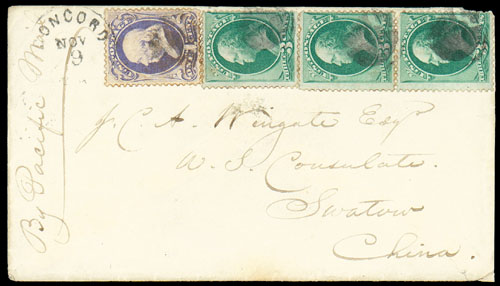 CONCORD
NOV
9
By Pacific M
J. C. A. Wingate Esqr
U. S. Consulate.
Swatow
China.